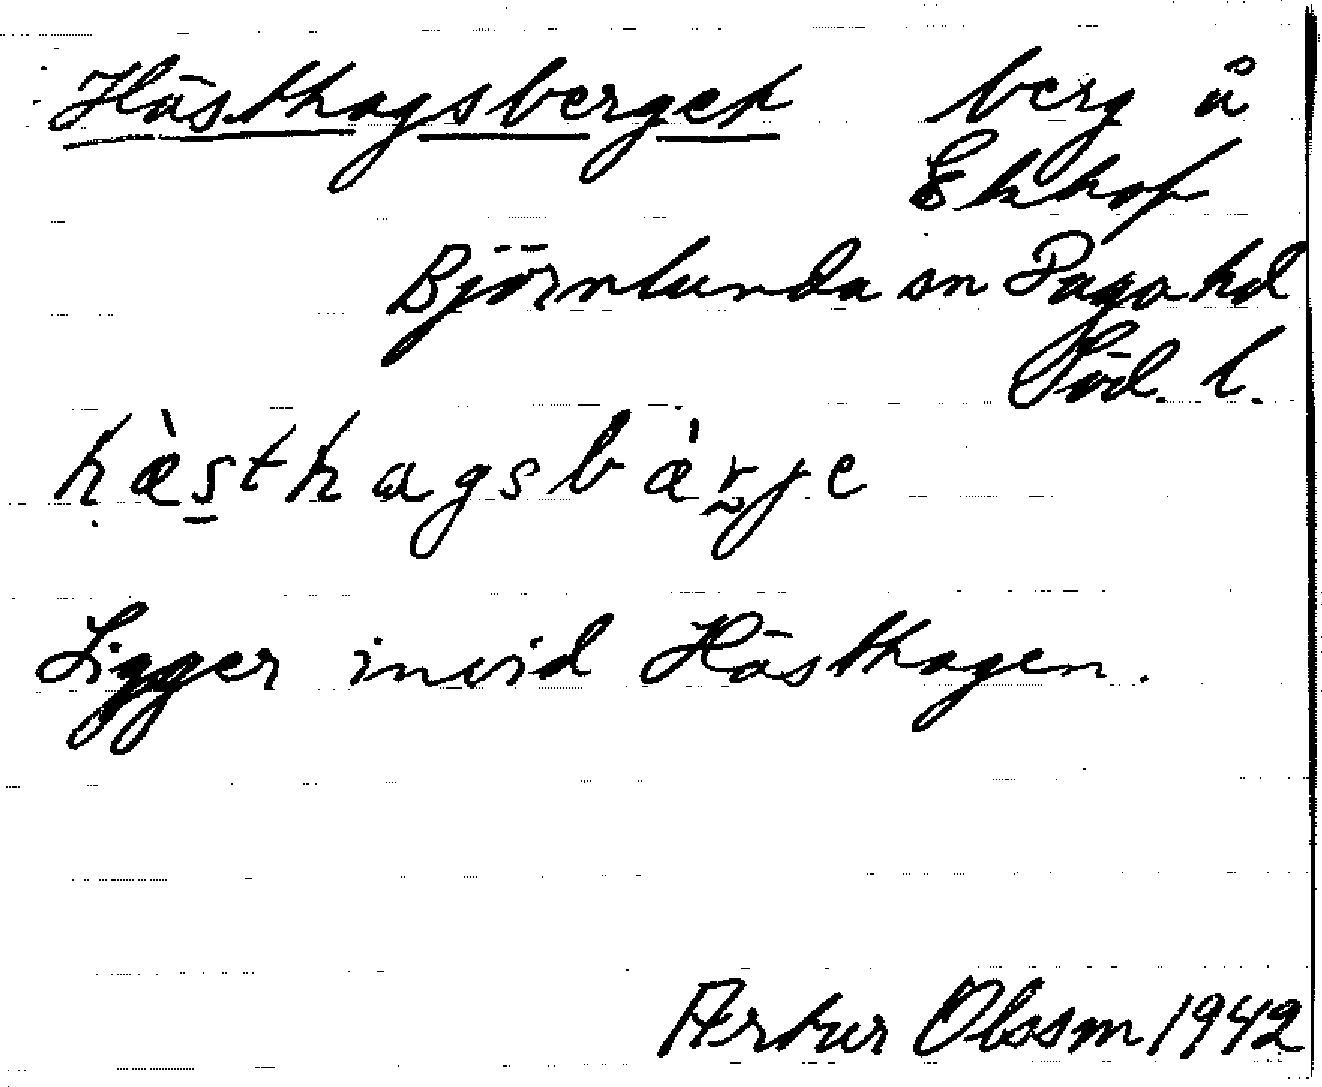 Hästhagsberget berg å
Ekhof
Björnlunda sn Daga hd
Söd. l.
hæ̀sthagsbæ̀rje
Ligger invid Hästhagen.
Artur Olsson 1942